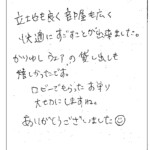 立地も良く部屋も広く
快適にすごすことが出来ました。
かりゆしウェアの貸し出しも
嬉しかったです。
ロビーでもらったお守り
大切にしますね。
ありがとうございました☺